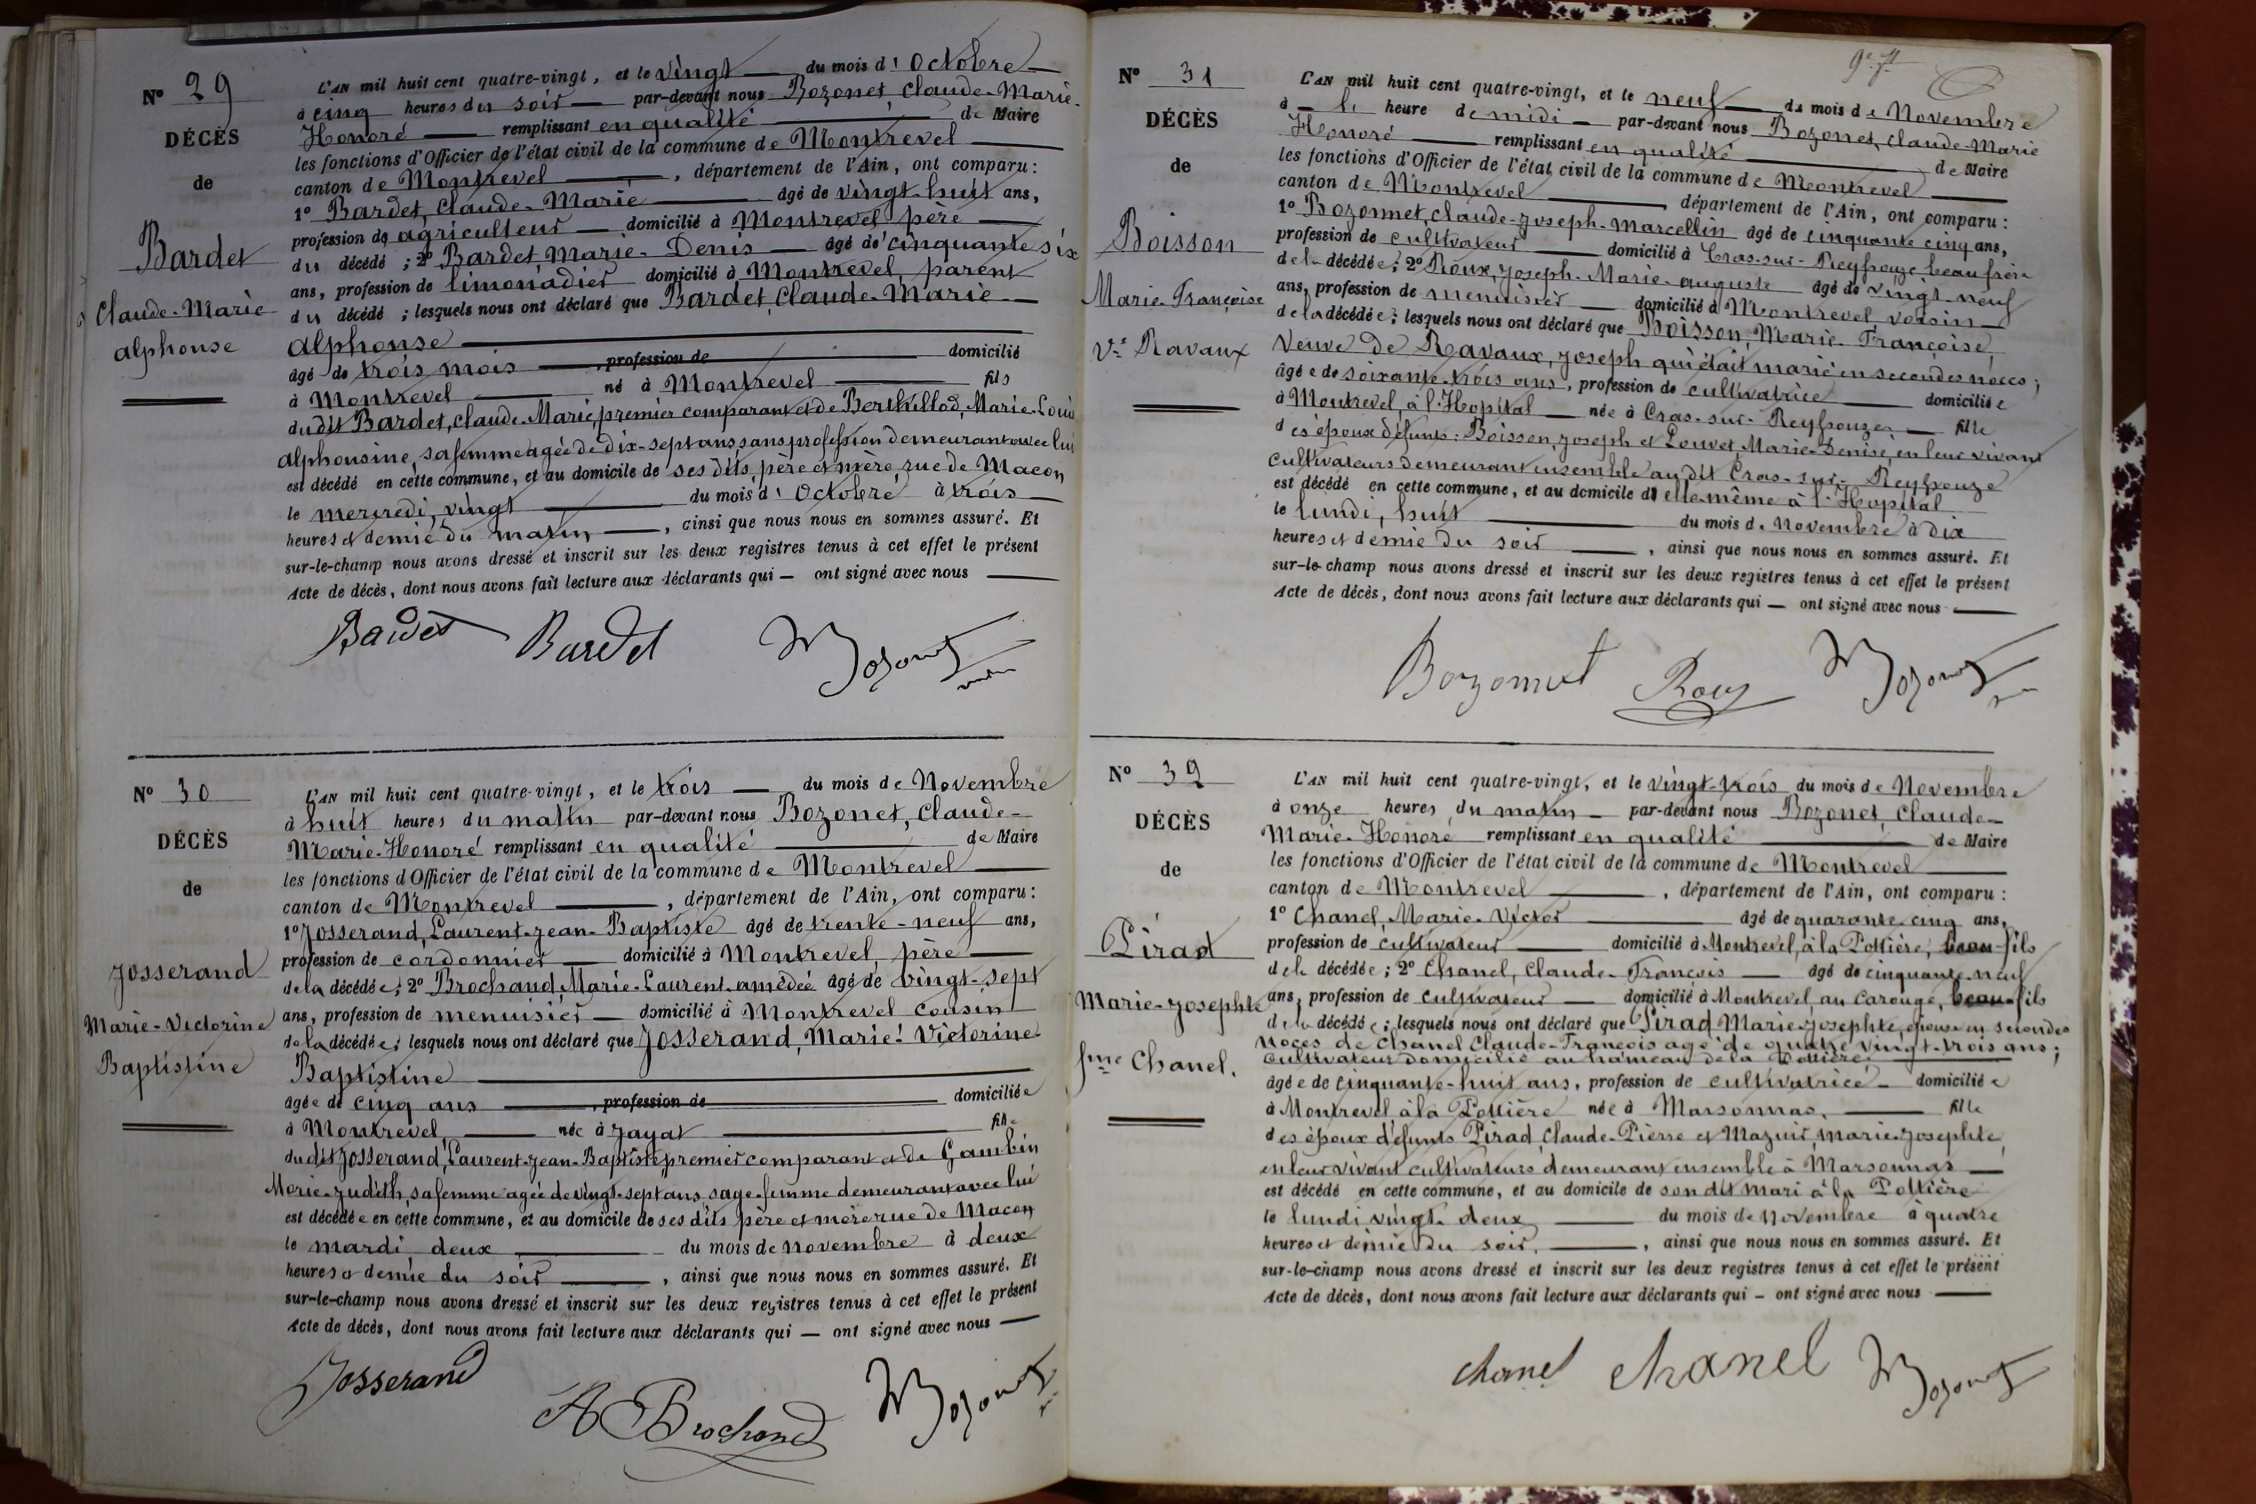 N° 29
DÉCÈS
de
Bardet
Claude-Marie
alphonse
L'AN mil huit cent quatre-vingt, et le vingt du mois d'Octobre
à cinq heures du soir par-devant nous Bozonet, Claude-Marie-
Honoré remplissant en qualité de Maire
les fonctions d'Officier de l'état civil de la commune de Montrevel
canton de Montrevel, département de l'Ain, ont comparu :
1° Bardet, Claude-Marie âgé de vingt-huit ans,
profession de agriculteur domicilié à Montrevel père
du décédé ; 2° Bardet Marie-Denis âgé de cinquante six
ans, profession de limonadier domicilié à Montrevel, parent
du décédé ; lesquels nous ont déclaré que Bardet, Claude-Marie
alphonse
âgé de trois mois, profession de domicilié
à Montrevel né à Montrevel fils
du dit Bardet, Claude-Marie, premier comparant et de Berthillod, Marie-Louise
alphonsine, sa femme agée de dix-sept ans sans profession demeurant avec lui
est décédé en cette commune, et au domicile de ses dits père et mère, rue de Macon
le mercredi, vingt du mois d'Octobre à trois
heures et demie du matin, ainsi que nous nous en sommes assuré. Et
sur-le-champ nous avons dressé et inscrit sur les deux registres tenus à cet effet le présent
Acte de décès, dont nous avons fait lecture aux déclarants qui — ont signé avec nous
Bardet Bardet Bozonet
N° 30
DÉCÈS
de
Josserand
Marie-Victorine
Baptistine
L'AN mil huit cent quatre-vingt, et le trois du mois de Novembre
à huit heures du matin par-devant nous Bozonet, Claude-
Marie-Honoré remplissant en qualité de Maire
les fonctions d'Officier de l'état civil de la commune de Montrevel
canton de Montrevel, département de l'Ain, ont comparu :
1° Josserand, Laurent-Jean-Baptiste âgé de trente-neuf ans,
profession de cordonnier domicilié à Montrevel, père
de la décédée ; 2° Brochand, Marie-Laurent-amédée âgé de vingt-sept
ans, profession de menuisier domicilié à Montrevel cousin
de la décédée ; lesquels nous ont déclaré que Josserand, Marie-Victorine
Baptistine
âgée de cinq ans, profession de domiciliée
à Montrevel née à Jayat fille
du dit Josserand, Laurent-Jean-Baptiste premier comparant et de Gambin
Marie-Judith, sa femme agée de vingt-sept ans sage-femme demeurant avec lui
est décédée en cette commune, et au domicile de ses dits père et mère rue de Macon
le mardi deux du mois de novembre à deux
heures et demie du soir, ainsi que nous nous en sommes assuré. Et
sur-le-champ nous avons dressé et inscrit sur les deux registres tenus à cet effet le présent
Acte de décès, dont nous avons fait lecture aux déclarants qui — ont signé avec nous
Josserand A Brochand Bozonet
N° 31
DÉCÈS
de
Boisson
Marie-Françoise
Vve Ravaux
L'AN mil huit cent quatre-vingt, et le neuf du mois de Novembre
à - l' heure de midi par-devant nous Bozonet, Claude-Marie
Honoré remplissant en qualité de Maire
les fonctions d'Officier de l'état civil de la commune de Montrevel
canton de Montrevel, département de l'Ain, ont comparu :
1° Bozonnet, Claude-Joseph-Marcellin âgé de cinquante cinq ans,
profession de cultivateur domicilié à Cras-sur-Reyssouze beau frère
de la décédée ; 2° Roux, Joseph-Marie-auguste âgé de vingt-neuf
ans, profession de menuisier domicilié à Montrevel, voisin
de la décédée ; lesquels nous ont déclaré que Boisson, Marie-Françoise,
Veuve de Ravaux, Joseph qui était marié en secondes noces ;
âgée de soixante-trois ans, profession de cultivatrice domiciliée
à Montrevel, à l'Hopital née à Cras-sur-Reyssouze fille
des époux défunts : Boisson, Joseph et Louvet, Marie-Denise, en leur vivant
cultivateurs demeurant ensemble au dit Cras-sur-Reyssouze
est décédé en cette commune, et au domicile d'elle-même à l'Hopital
le lundi, huit du mois de novembre à dix
heures et demie du soir, ainsi que nous nous en sommes assuré. Et
sur-le-champ nous avons dressé et inscrit sur les deux registres tenus à cet effet le présent
Acte de décès, dont nous avons fait lecture aux déclarants qui — ont signé avec nous
Bozonnet Roux Bozonet
N° 32
DÉCÈS
de
Pirad
Marie-Josephte
fme Chanel.
L'AN mil huit cent quatre-vingt, et le vingt-trois du mois de Novembre
à onze heures du matin par-devant nous Bozonet, Claude-
Marie-Honoré remplissant en qualité de Maire
les fonctions d'Officier de l'état civil de la commune de Montrevel
canton de Montrevel, département de l'Ain, ont comparu :
1° Chanel, Marie-Victor âgé de quarante-cinq ans,
profession de cultivateur domicilié à Montrevel, à la Pottière, beau-fils
de la décédée ; 2° Chanel, Claude-François âgé de cinquante-neuf
ans, profession de cultivateur domicilié à Montrevel, au Carouge, beau-fils
de la décédée ; lesquels nous ont déclaré que Pirad Marie-Josephte, épouse en secondes
Noces de Chanel Claude-François agé de quatre vingt-trois ans ;
cultivateur domicilié au hameau de la Pottière
âgée de cinquante-huit ans, profession de cultivatrice domiciliée
à Montrevel à la Pottière née à Marsonnas, fille
des époux défunts Pirad Claude-Pierre et Mazuir, Marie-Josephte,
en leur vivant cultivateurs demeurant ensemble à Marsonnas
est décédé en cette commune, et au domicile de son dit mari à la Pottière
le lundi vingt-deux du mois de Novembre à quatre
heures et demie du soir, ainsi que nous nous en sommes assuré. Et
sur-le-champ nous avons dressé et inscrit sur les deux registres tenus à cet effet le présent
Acte de décès, dont nous avons fait lecture aux déclarants qui — ont signé avec nous
Chanel Chanel Bozonet